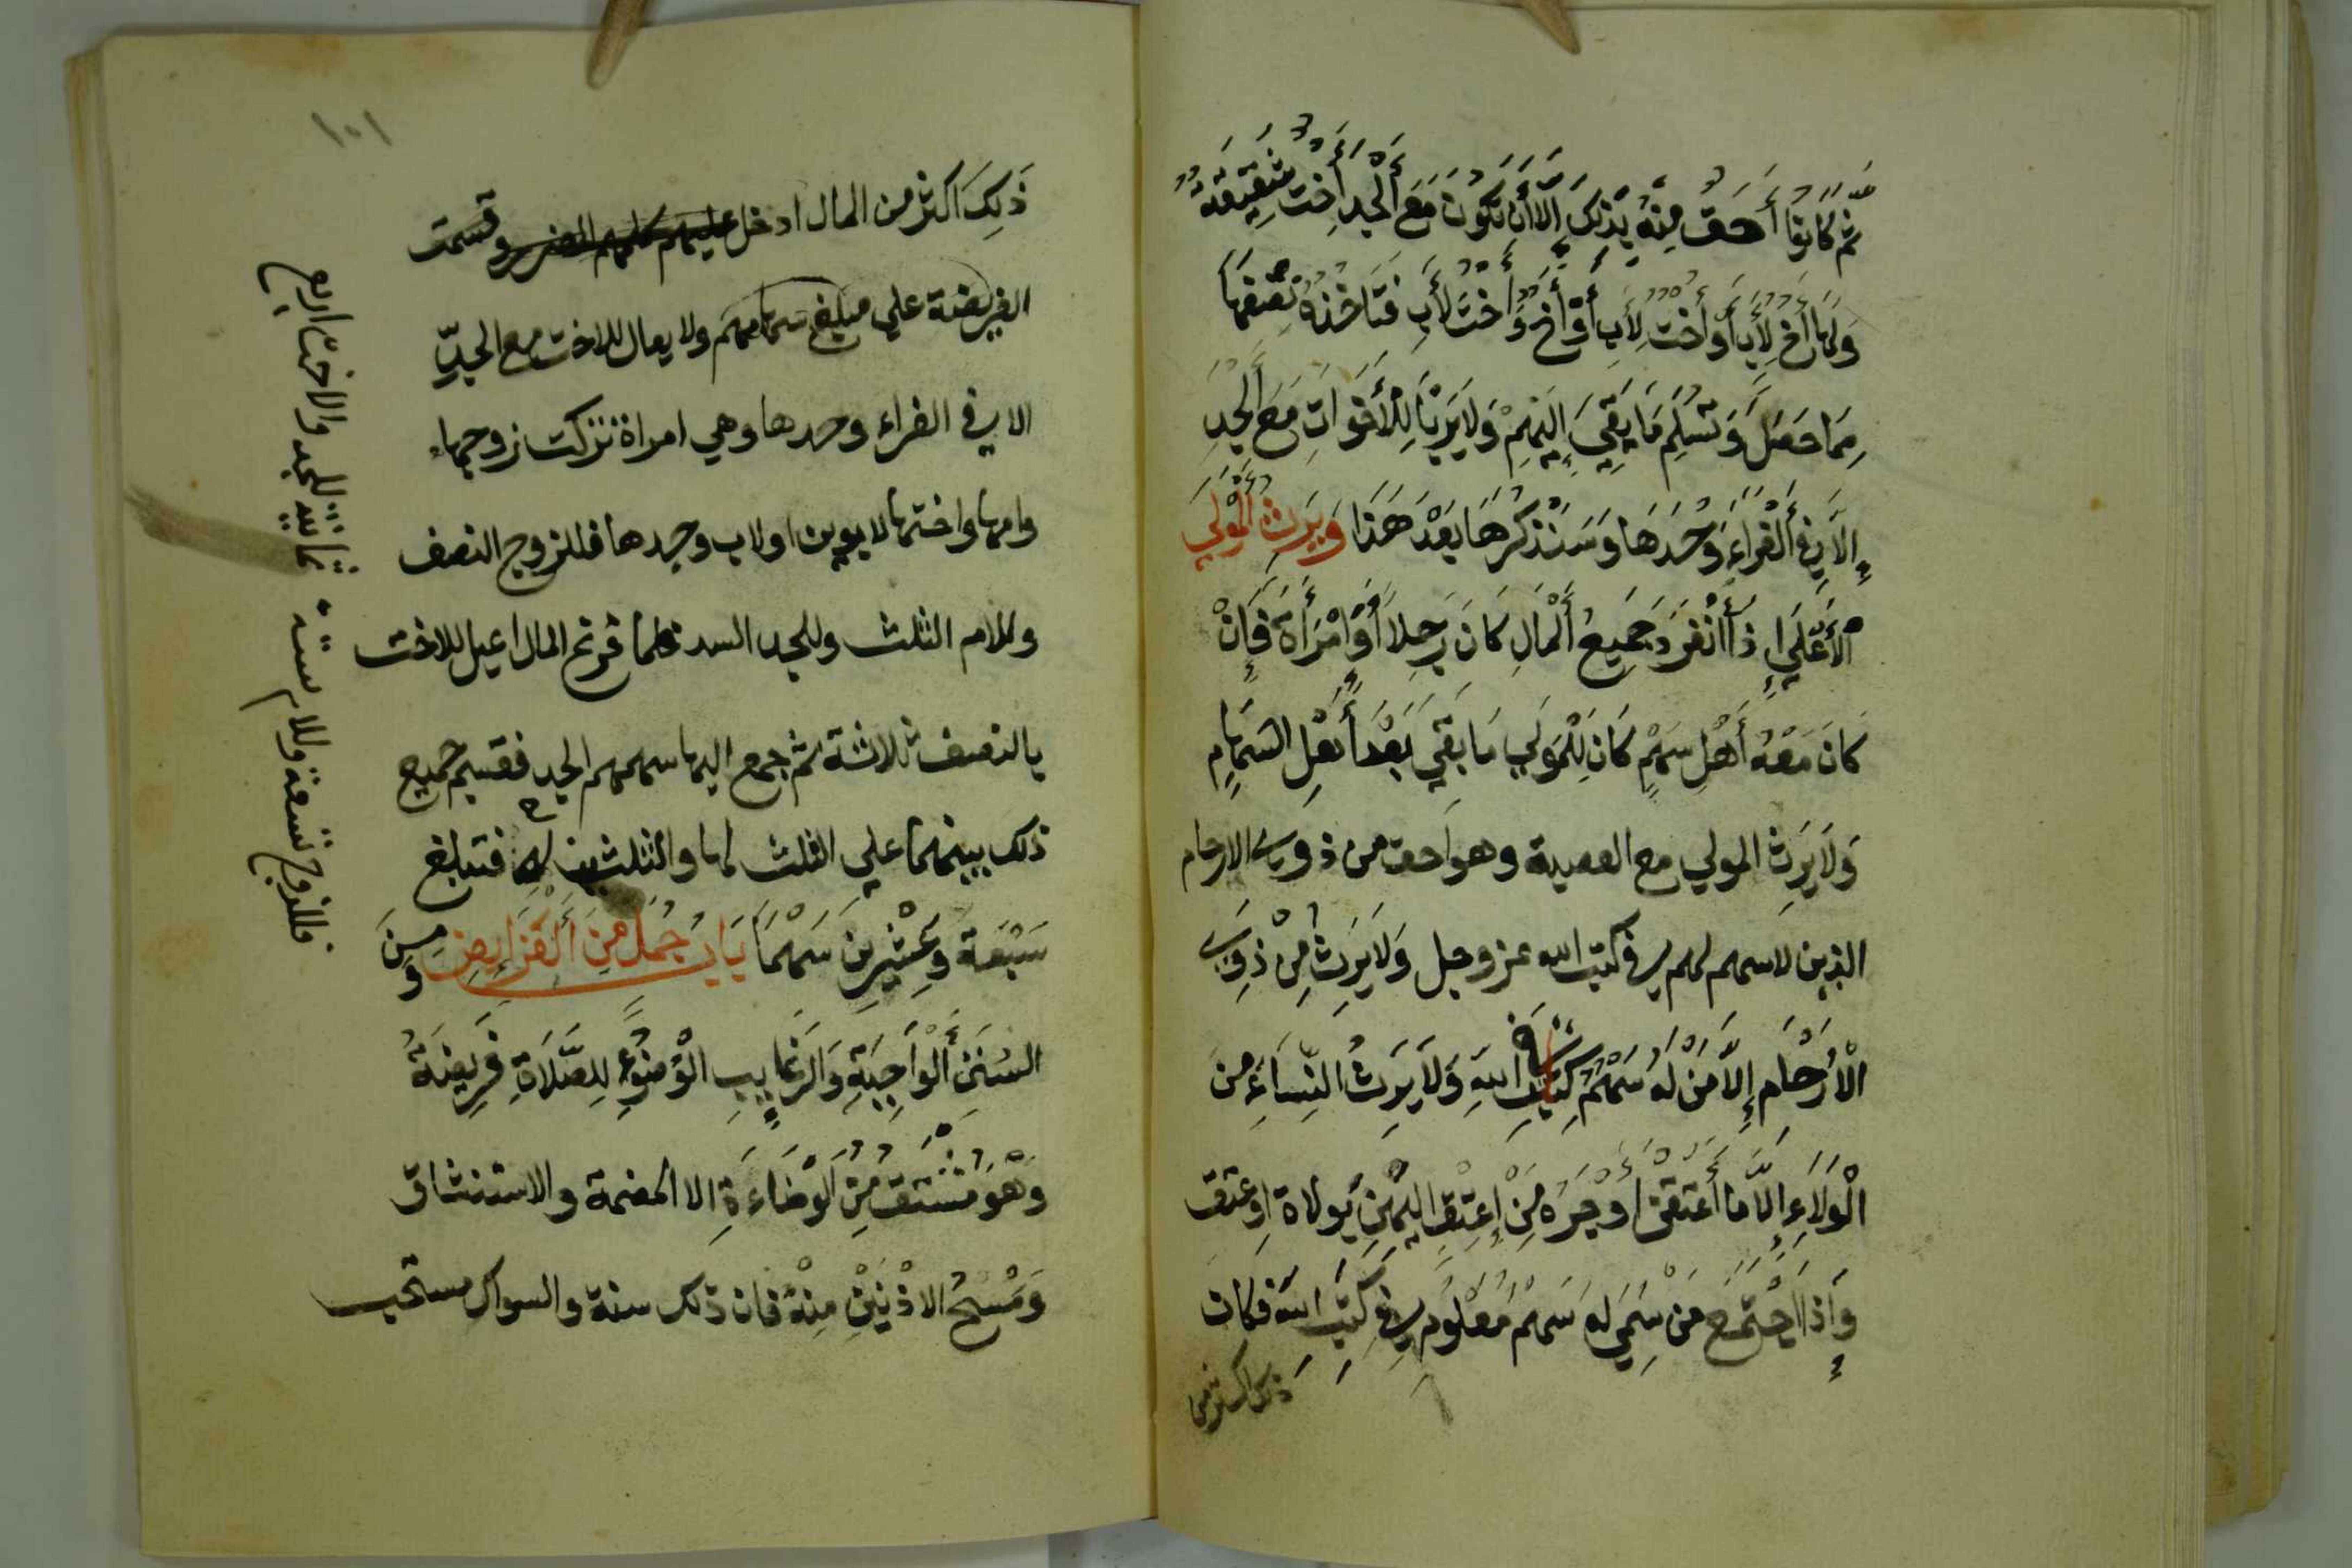 ثُمَّ كَانُوا أَحَقَّ مِنْهُ بِذٰلِكَ إِلَّا أَن تَكُونَ مَعَ أَلْجَدِ أُخْتٌ شَقِيقَةٌ
وَلَهَا أَخٌ لِأَبٍ أَوْ أُخْتٌ لِأَبٍ أَوْ أَخٌ وَأُخْتٌ لأَبٍ فَتَأخُذُهُ نِصْفَهَا
مِمَّا حَصَلَ وَتُسَلِّمُ مَا بَقِيَ إِلَيْهِمْ وَلَا يَرْبَا لِلْأَخَوَاتِ مَعَ أَلْجَدِ
إِلَّا فِي أَلْغَرَاءِ وَحْدَهَا وَسَنَذْكُرُهَا بَعْدَ هَذَا وَيَرِثُ أَلْمَوْلَي
الْأَعْلَي إِذَا أَنْفَرَدَ جَمِيعُ أَلْمَالِ كَانَ رَجِلًا أَوِ امْرَأَةً فَإِنْ
كَانَ مَعْهُ أَهْلُ سَهْمٍ كَانَ لِلْمَوْلَي مَا بَقِيَ بَعْدَ أَهْلِ السِهَامِ
وَلَا يَرِثُ المولي مع العصبة وهو احق من ذوي الارحام
الذين لا سهم لهم في كتب الله عز وجل وَلَا يَرِثُ مِنْ ذَوِي
الْأَرْحَامِ إِلَّا مَنْ لَهُ سَهْمٌ فِي كِتٰبِ اللَّهِ وَلَا يَرِثُ النِّسَاءُ مِنَ
الْوَلَاءِ إِلَّا مَا أَعْتَقْنَ أَوْ جَرَهُ مَنْ أَعْتَقْنَ إِلَيْهِنَّ بِوِلَادَةٍ اوْ عِتْقٍ
وَإِذَا اجْتَمَعَ مَنْ سُمِّيَ لَهُ سَهْمٌ مَعْلُومٌ فِي كِتٰبِ اللَّهِ فَكَانَ
ذلك اكثر من
١٠١
ذَلِكَ اكثر من المال ادخل عليهم كلهم الضرر وقسمت
الفريضة علي مبلغ سهامهم ولا يعال للاخت مع الجدِّ
الا في الغراء وحدها وهي امراة تركت زوجها
وامها واختها لابوين او لاب وجدها فللزوج النصف
وللام الثلث وللجد السدس فلما فرغ المال اعيل للاخت
بالنصف ثلاثة ثم جمع اليها سهم الجد فقسم جميع
ذلك بينهما علي الثلث لها والثلثين له فتبلغ
سَبْعَة وَعِشْرِينَ سَهْمًا بَابُ جُمَلٌ مِنَ أَلْفَرَائِضِ وَمِنَ
السُنَنِ أَلْوَاجِبَةِ وَالرَغَايِبِ الْوُضُوءُ لِلصَّلَاةِ فَرِيضَةٌ
وَهُوَ مُشْتَقٌ مِنَ الْوَضَاءَةِ الا المضمة والاستنشاق
وَمَسْحُ الاذْنَيْنِ مِنْهُ فان ذلك سنة والسواك مستحب
فللزوج تسعة وللام ستة ٠ ثمانية للجد والاخت اربع